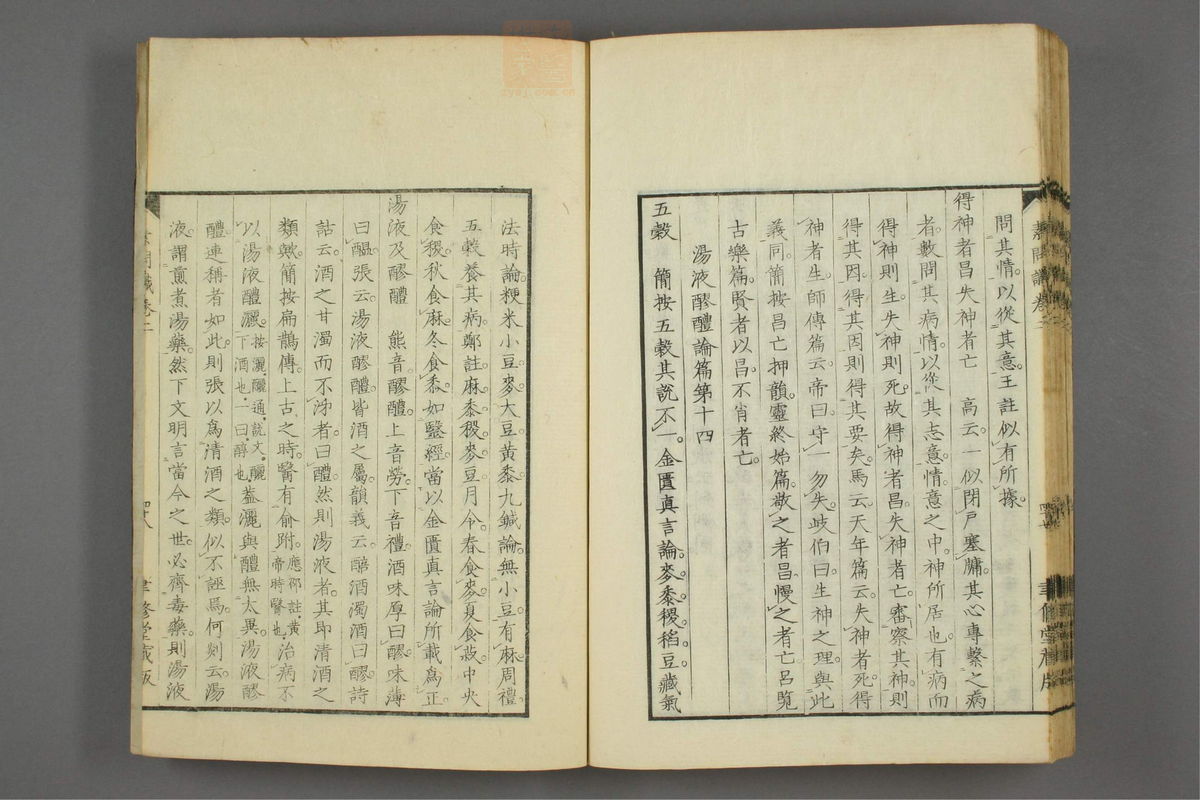 問其情以從其意王註似有所據
得神者昌失神者亡 高云一似閉戶塞牖其心專繫之病
者數問其病情以從其志意情意之中神所居也有病而
得神則生失神則死故得神者昌失神者亡審察其神則
得其因得其因則得其要矣馬云天年篇云失神者死得
神者生師傳篇云帝曰守一勿失歧伯曰生神之理與此
義同簡按昌亡押韻靈終始篇敬之者昌慢之者亡呂覧
古樂篇賢者以昌不肖者亡
湯液醪醴論篇第十四
五穀 簡按五穀其說不一金匱真言論麥黍稷稻豆藏氣
法時論粳米小豆麥大豆黃黍九鍼論無小豆有麻周禮
五穀養其病鄭註麻黍稷麥豆月令春食麥夏食菽中央
食稷秋食麻冬食黍如鑒經當以金匱真言論所載為正
湯液及醪醴 熊音醪醴上音勞下音禮酒味厚曰醪味薄
曰醴張云湯液醪醴皆酒之屬韻義云醅酒濁酒曰醪詩
詁云酒之甘濁而不泲者曰醴然則湯液者其即清酒之
類歟簡按扁鵲傳上古之時醫有俞跗應邵註黃帝時醫也治病不
以湯液醴灑按灑釃通說文釃下酒也一曰醇也蓋灑與醴無太異湯液醪
醴連稱者如此則張以為清酒之類似不誣焉何剡云湯
液謂煎煮湯藥然下文明言當今之世必齊毒藥則湯液
素問識卷二
四八
聿修堂藏版